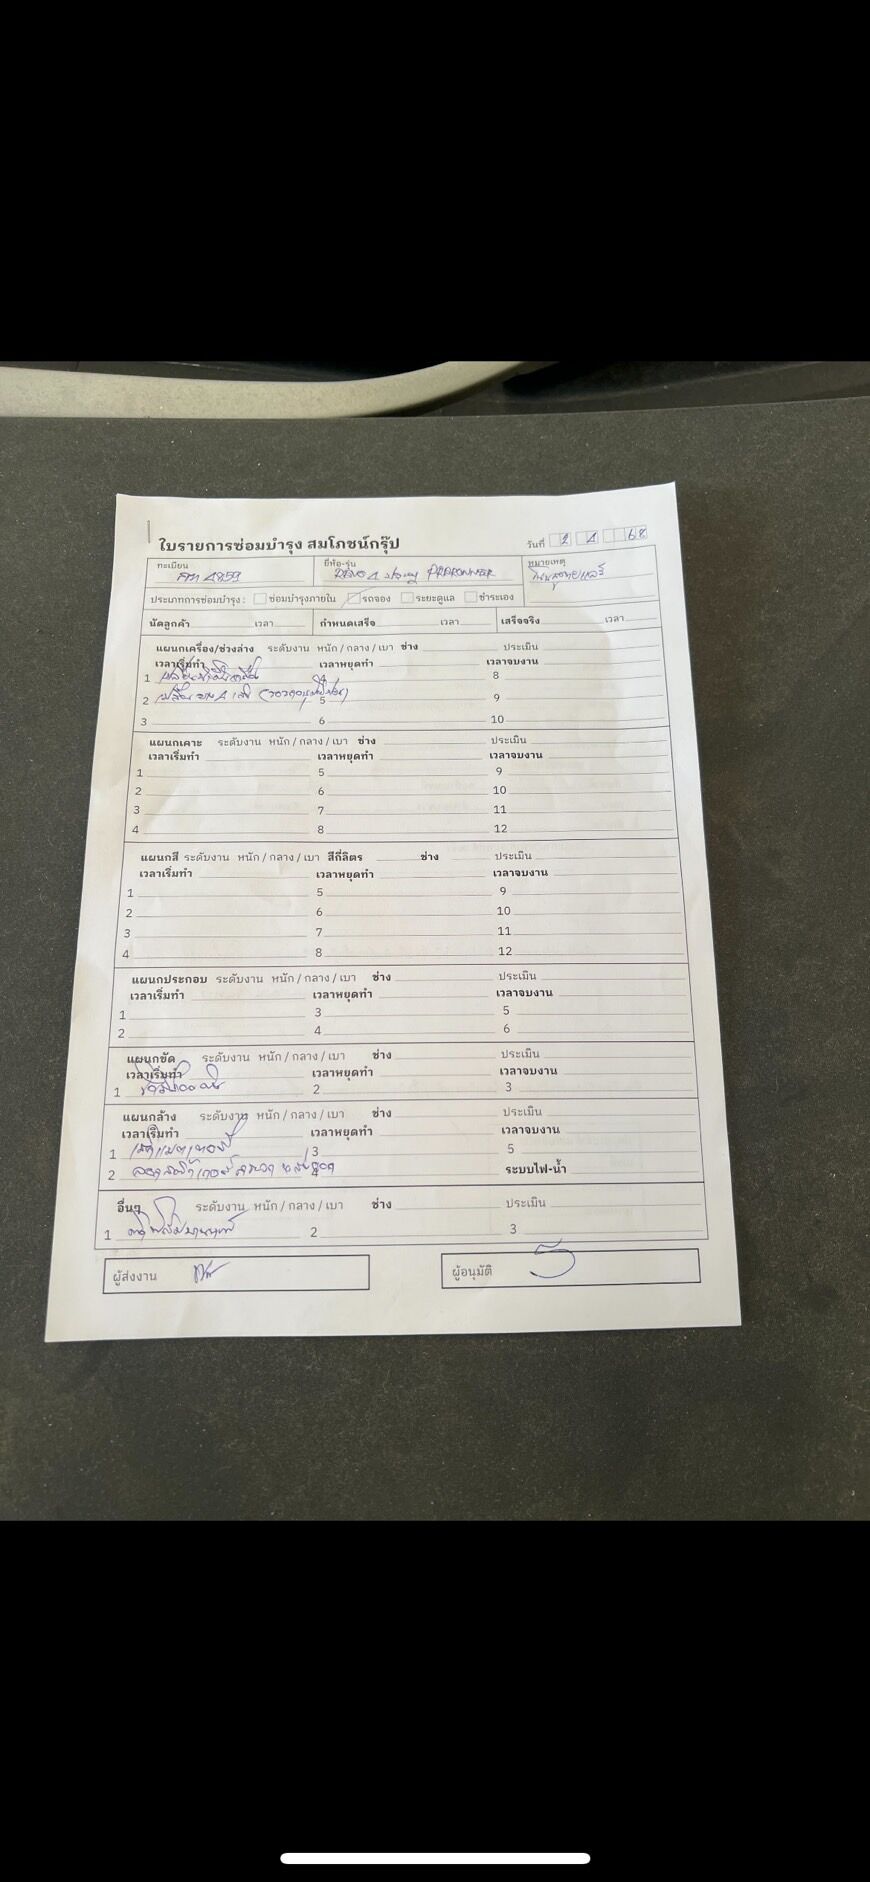 ใบรายการซ่อมบำรุง สมโภชน์กรุ๊ป
วันที่ 2 4 68
ทะเบียน 4859
ยี่ห้อ-รุ่น REVO 4 ประตู PRERUNNER
หมายเหตุ
ประเภทการซ่อมบำรุง : ซ่อมบำรุงภายใน รถจอง ระยะดูแล ชำระเอง
นัดลูกค้า เวลา กำหนดเสร็จ เวลา เสร็จจริง เวลา
แผนกเครื่อง/ช่วงล่าง ระดับงาน หนัก / กลาง / เบา ช่าง ประเมิน
เวลาเริ่มทำ เวลาหยุดทำ เวลาจบงาน
1 4 8
2 5 9
3 6 10
แผนกเคาะ ระดับงาน หนัก / กลาง / เบา ช่าง ประเมิน
เวลาเริ่มทำ เวลาหยุดทำ เวลาจบงาน
1 5 9
2 6 10
3 7 11
4 8 12
แผนกสี ระดับงาน หนัก / กลาง / เบา สีกี่ลิตร ช่าง ประเมิน
เวลาเริ่มทำ เวลาหยุดทำ เวลาจบงาน
1 5 9
2 6 10
3 7 11
4 8 12
แผนกประกอบ ระดับงาน หนัก / กลาง / เบา ช่าง ประเมิน
เวลาเริ่มทำ เวลาหยุดทำ เวลาจบงาน
1 3 5
2 4 6
แผนกขัด ระดับงาน หนัก / กลาง / เบา ช่าง ประเมิน
เวลาเริ่มทำ เวลาหยุดทำ เวลาจบงาน
1 2 3
แผนกล้าง ระดับงาน หนัก / กลาง / เบา ช่าง ประเมิน
เวลาเริ่มทำ เวลาหยุดทำ เวลาจบงาน
1 3 5
2 4 ระบบไฟ-น้ำ
อื่นๆ ระดับงาน หนัก / กลาง / เบา ช่าง ประเมิน
1 2 3
ผู้ส่งงาน ผู้อนุมัติ